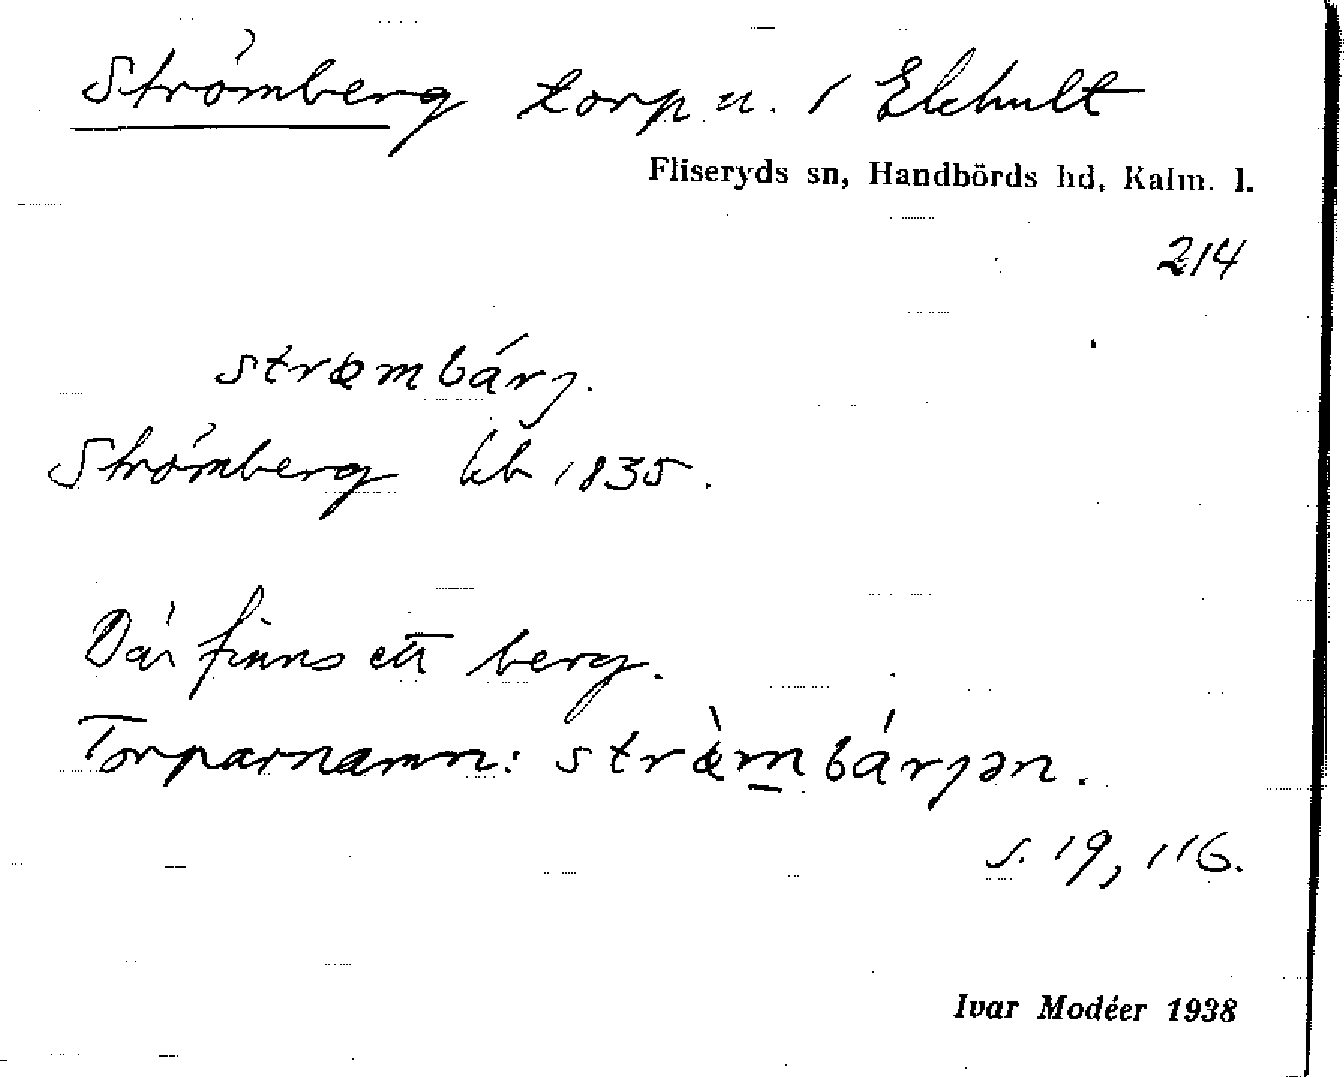 Strömberg torp u. 1 Ekhult
Fliseryds sn, Handbörds hd, Kalm. l.
214
stræmbárj.
Strömberg kb 1835.
Där finns ett berg.
Torparnamn: stræ̀mbárjən.
s. 19, 116.
Ivar Modéer 1938